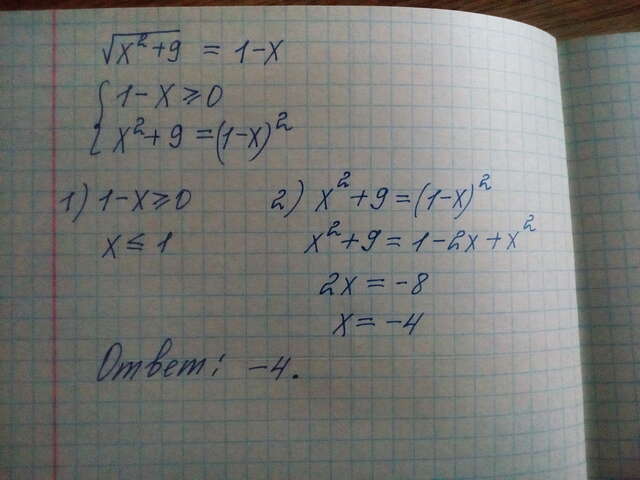 √x²+9 = 1-x
{ 1-x ≥ 0
x²+9 = (1-x)²
1) 1-x ≥ 0
x ≤ 1
2) x²+9 = (1-x)²
x²+9 = 1-2x+x²
2x = -8
x = -4
Ответ: -4.